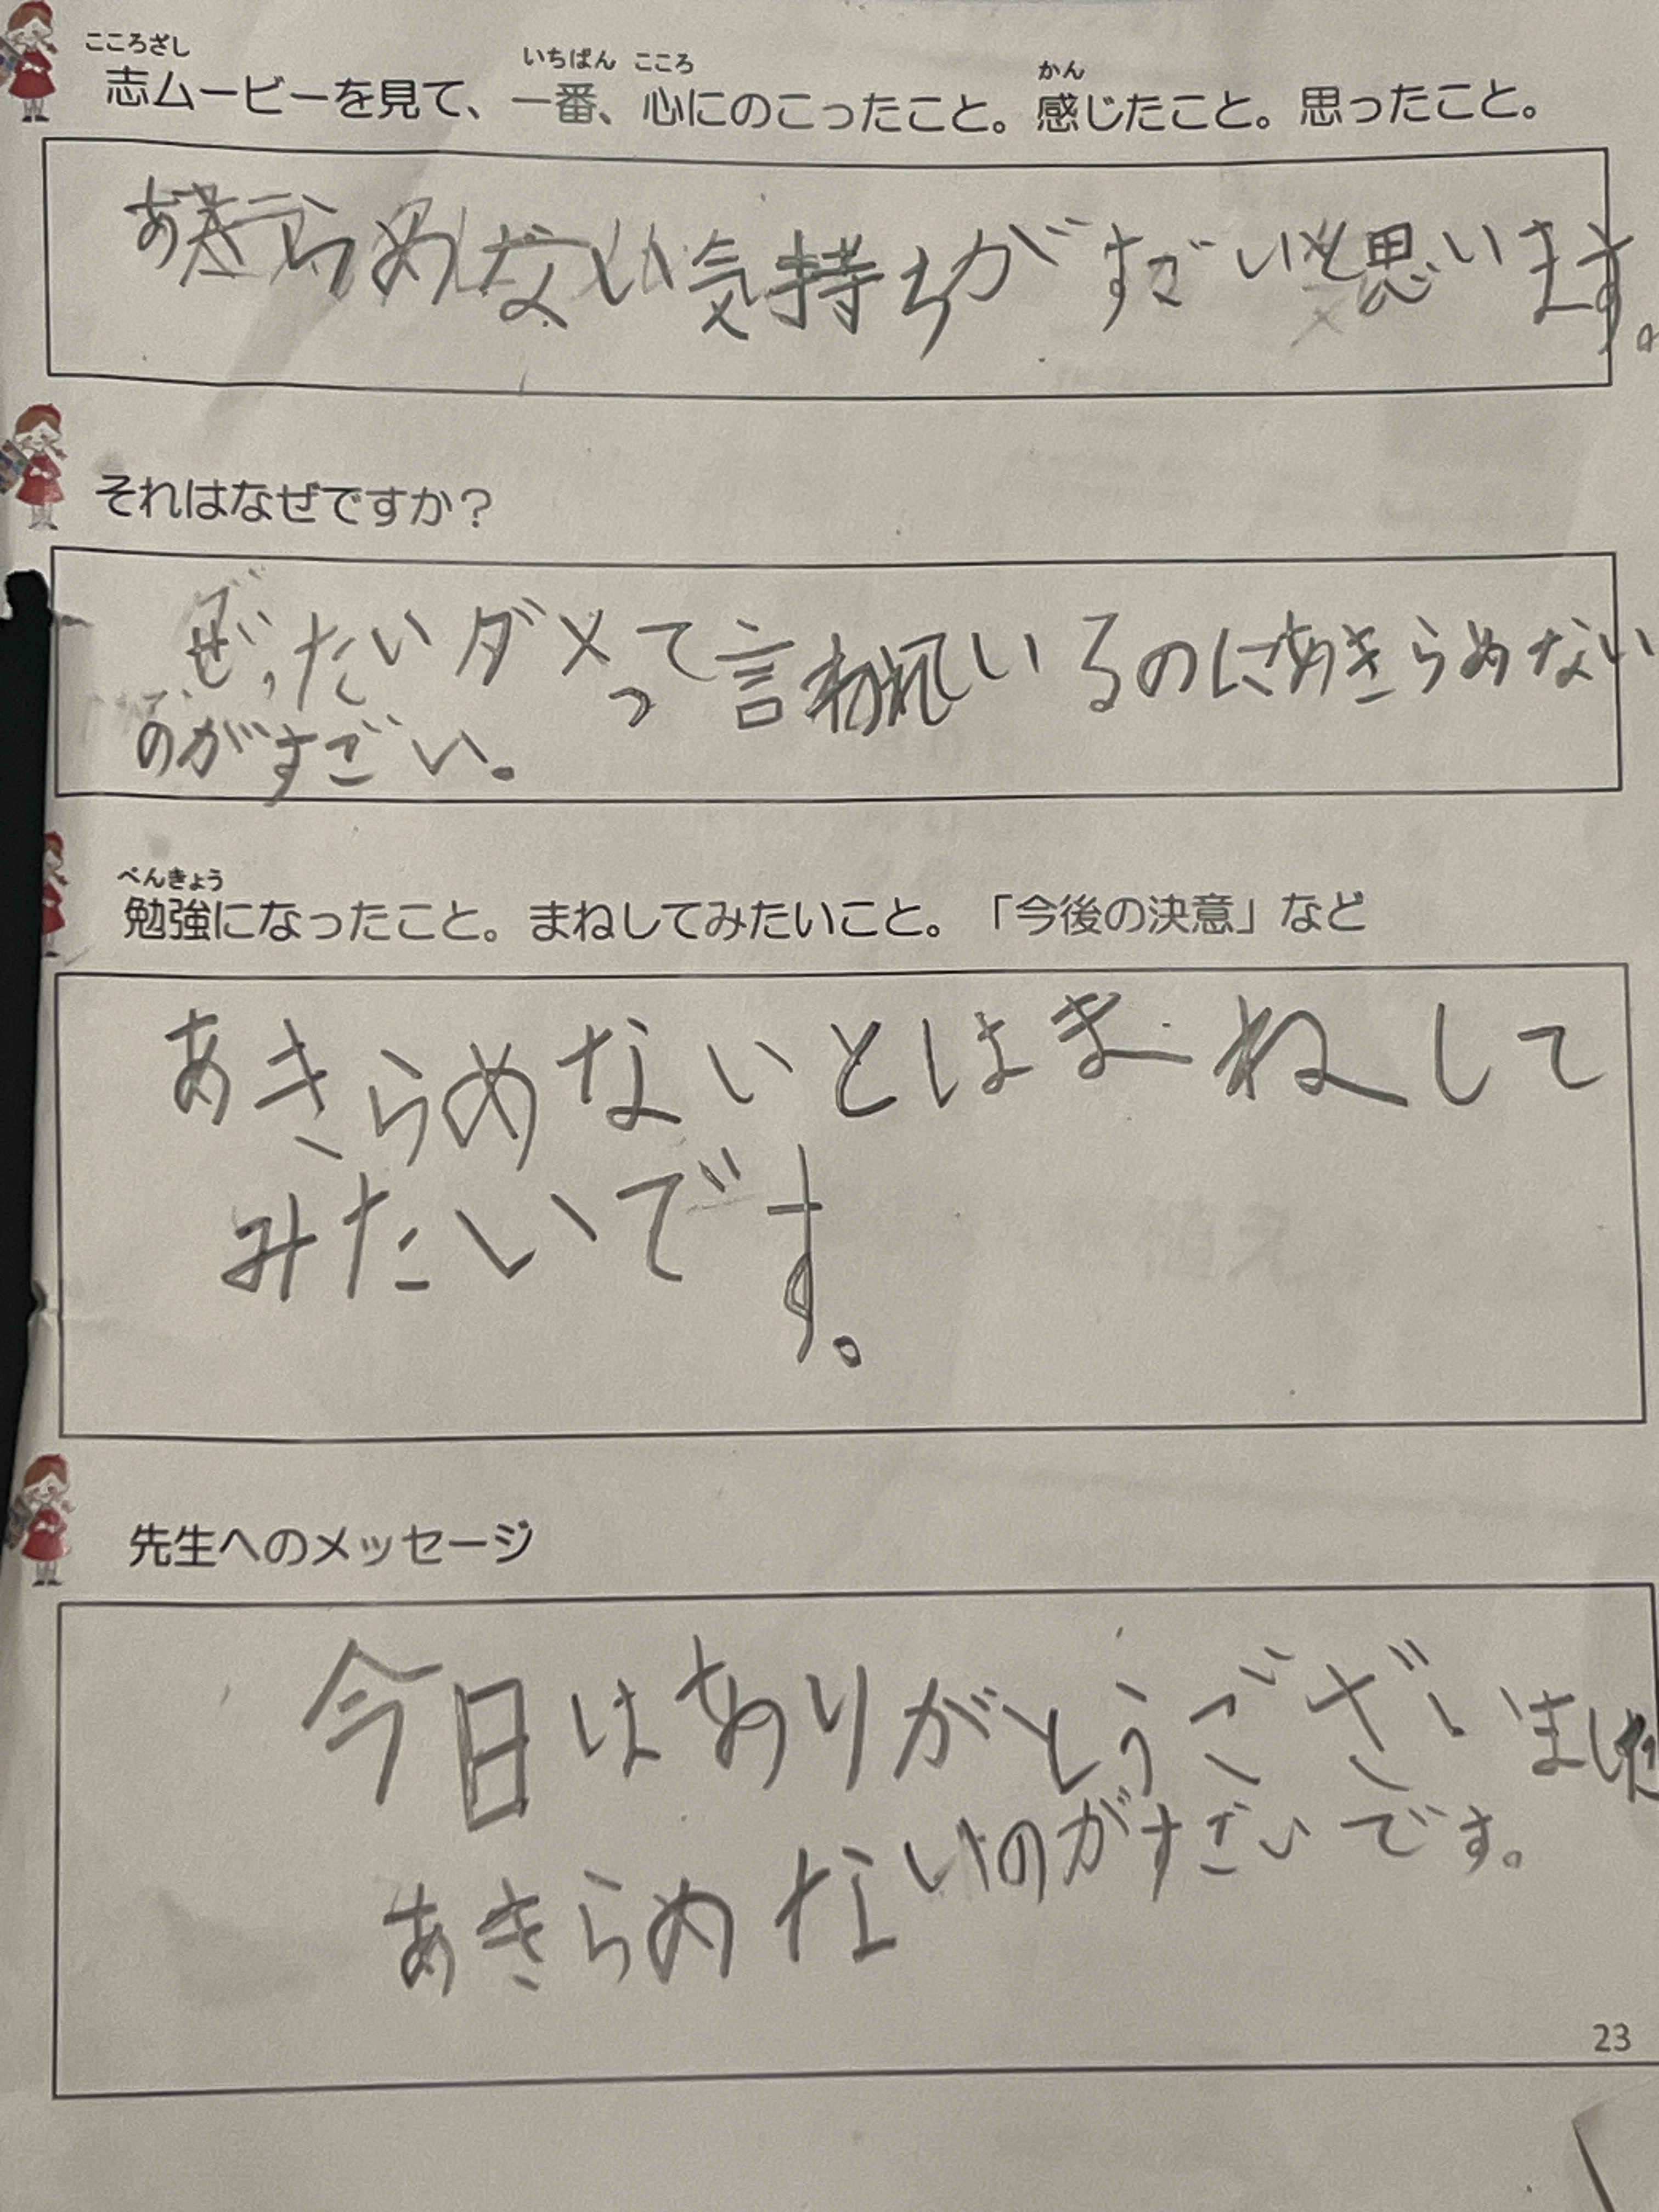 こころざし いちばん こころ かん
志ムービーを見て、一番、心にのこったこと。感じたこと。思ったこと。
あきらめない気持ちがすごいと思います。
それはなぜですか？
ぜったいダメって言われているのにあきらめない
のがすごい。
べんきょう
勉強になったこと。まねしてみたいこと。「今後の決意」など
あきらめないとはまねして
みたいです。
先生へのメッセージ
今日はありがとうございました
あきらめないのがすごいです。
23